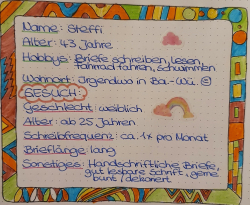 Name: Steffi
Alter: 43 Jahre
Hobbys: Briefe schreiben, lesen,
fahrrad fahren, schwimmen
Wohnort: Irgendwo in Ba-Wü. ☺
GESUCH:
Geschlecht: weiblich
Alter: ab 25 Jahren
Schreibfrequenz: ca. 1x pro Monat
Brieflänge: lang
Sonstiges: Handschriftliche Briefe,
gut lesbare Schrift, gerne
bunt / dekoriert